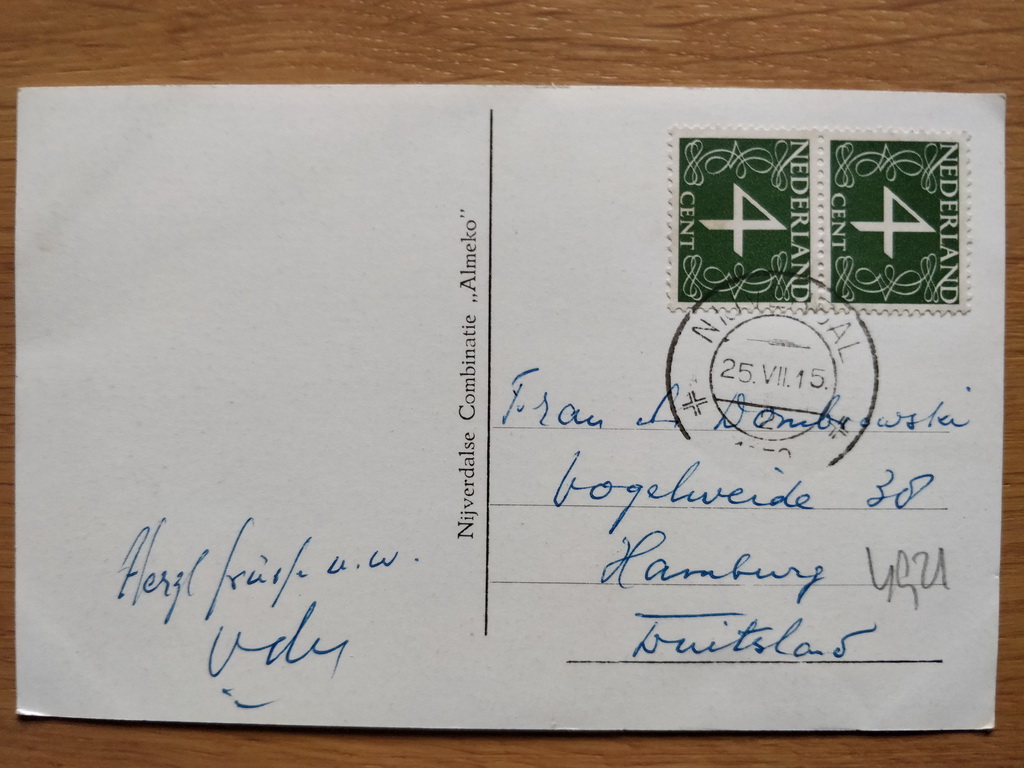 NEDERLAND
4
CENT
NEDERLAND
4
CENT
25.VII.15.
Nijverdalse Combinatie „Almeko”
Frau Dombrowski
Vogelweide 38
Hamburg
Duitsland
Herzl Grüße u.w.